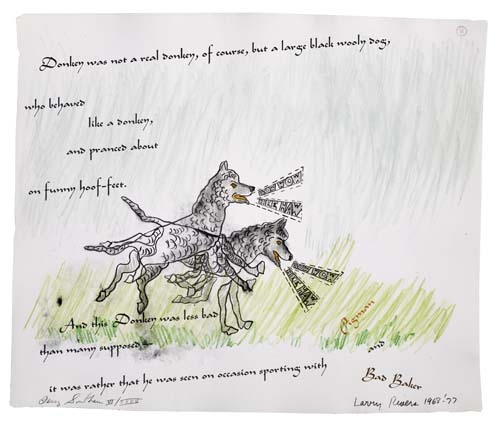 Donkey was not a real donkey, of course, but a large black wooly dog,
who behaved
like a donkey,
and pranced about
on funny hoof-feet.
BOW WOW
HEE HAW
BOW WOW
HEE HAW
And this Donkey was less bad
than many supposed—
it was rather that he was seen on occasion sporting with
Pigman
and
Bad Baker
Terry Southern
Larry Rivers 1968-'77